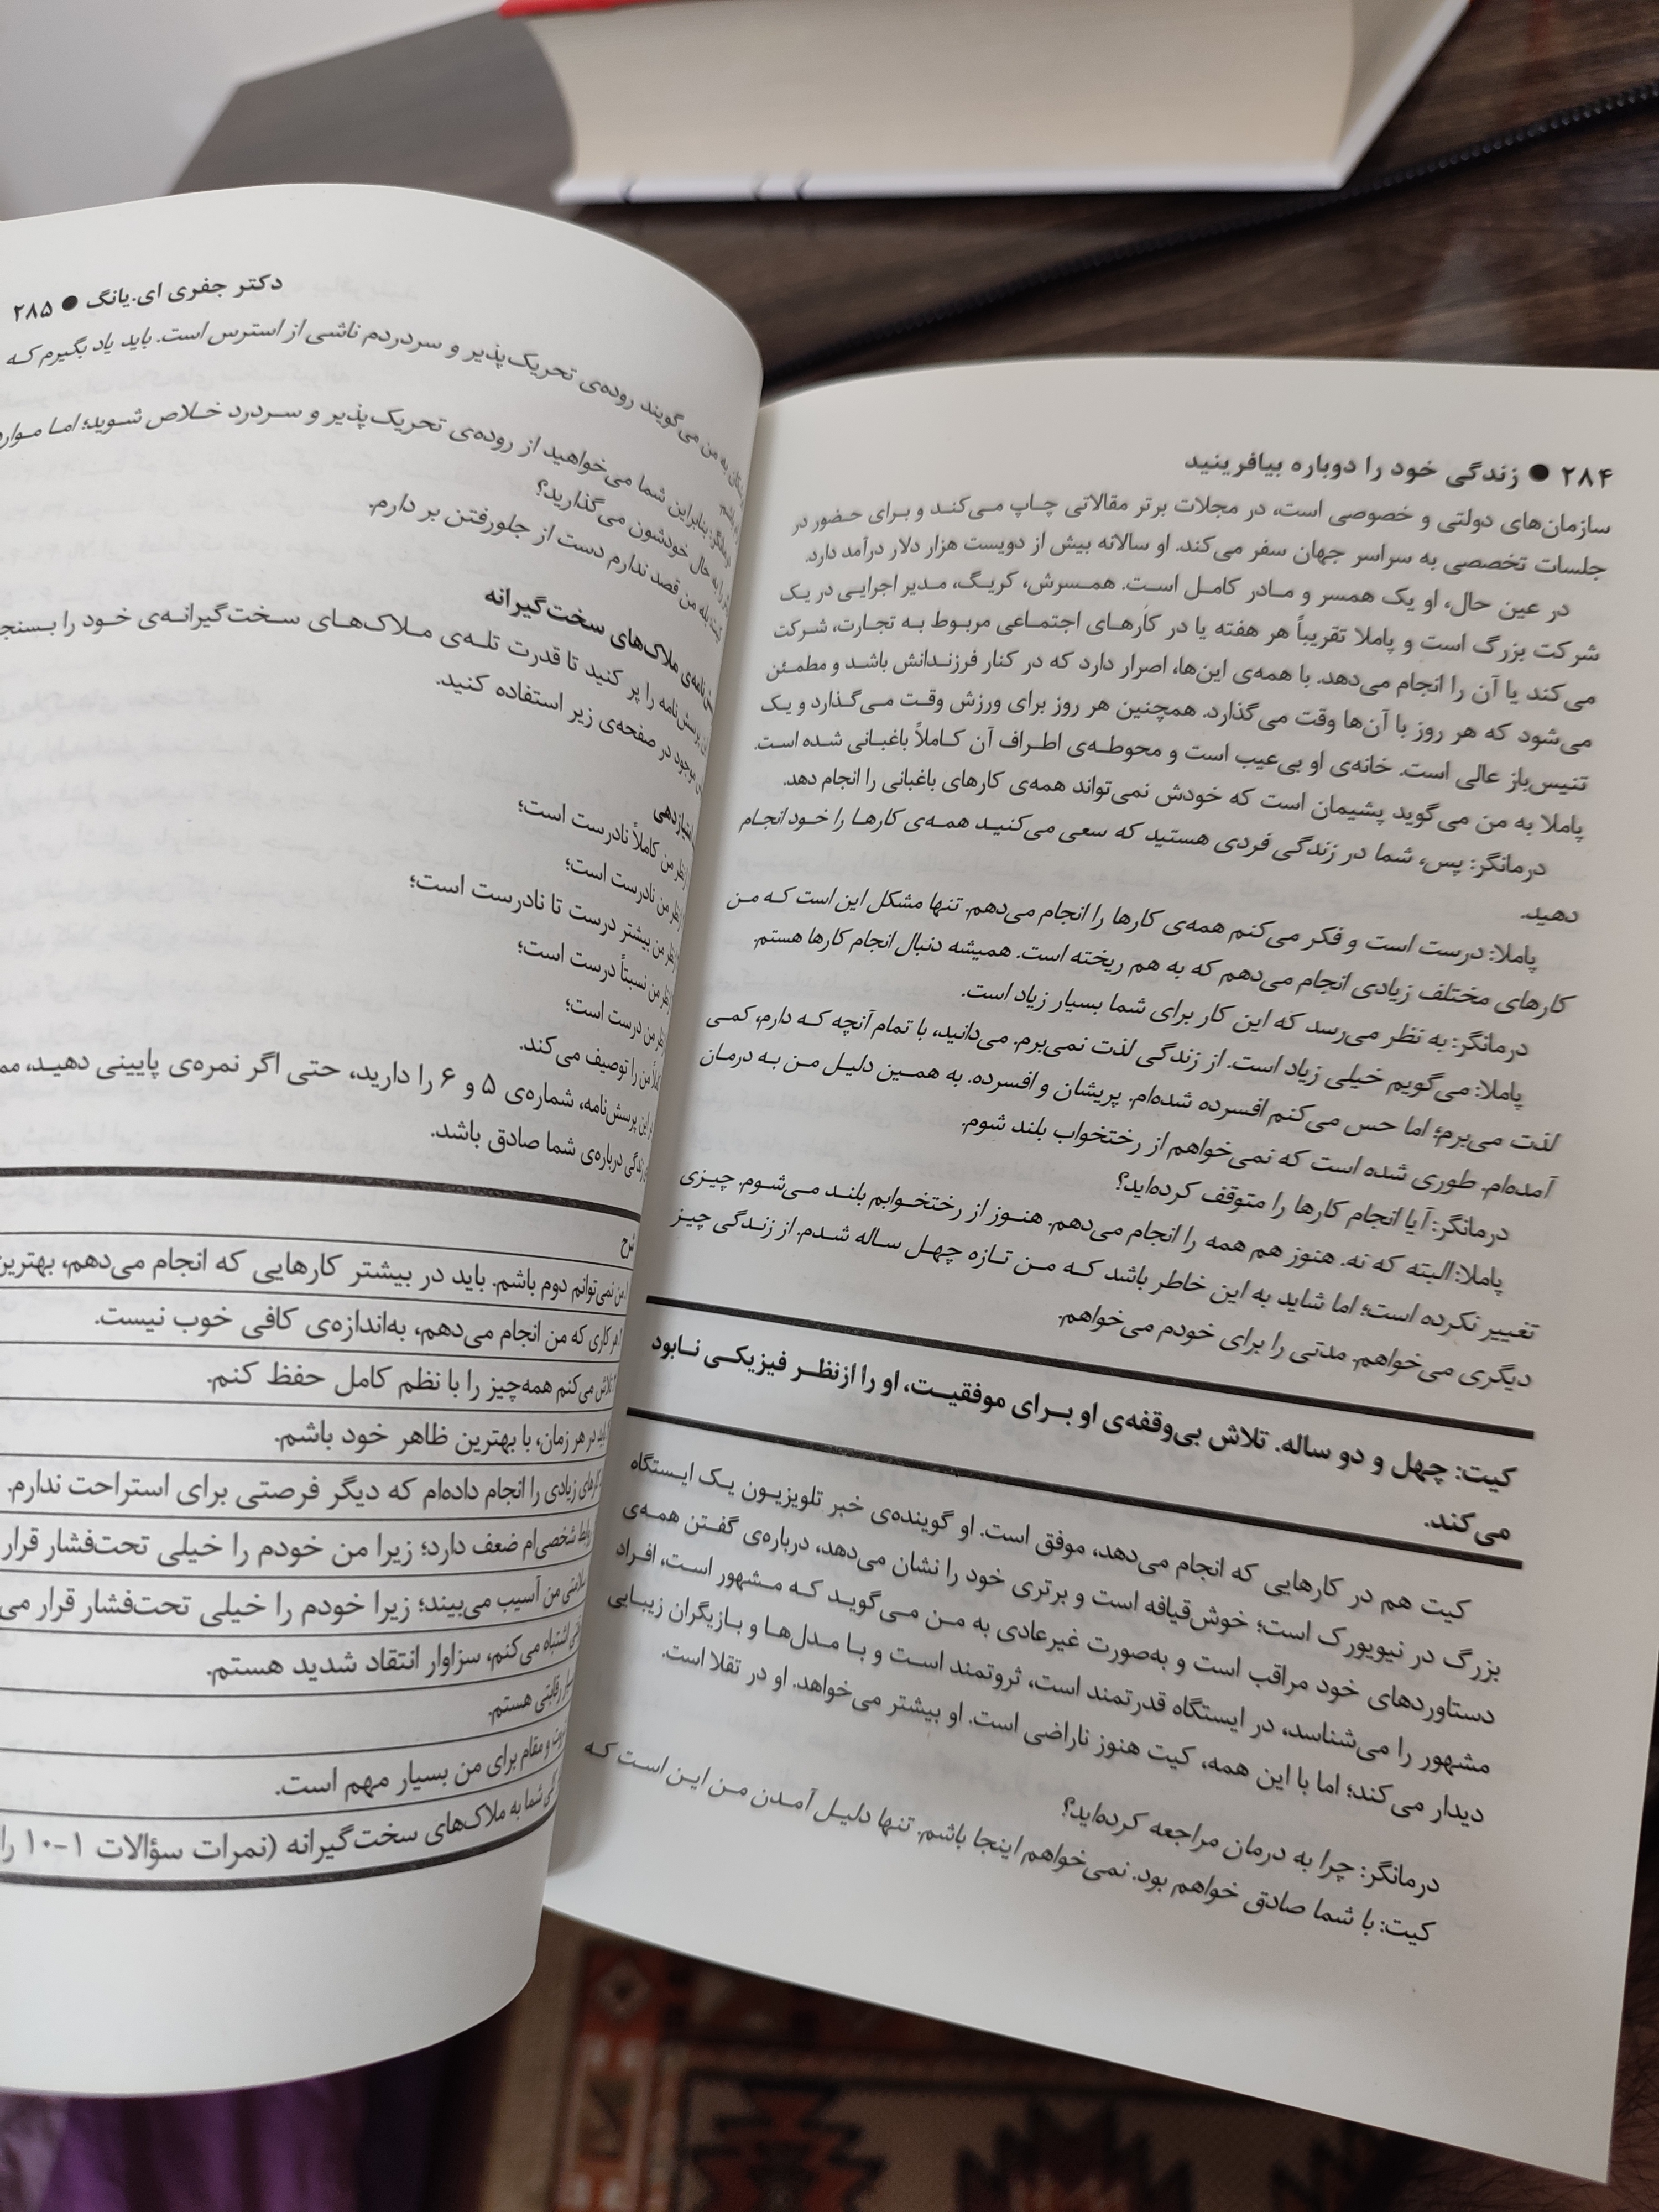 ۲۸۴ ● زندگی خود را دوباره بیافرینید
سازمان‌های دولتی و خصوصی است، در مجلات برتر مقالاتی چاپ می‌کند و برای حضور در
جلسات تخصصی به سراسر جهان سفر می‌کند. او سالانه بیش از دویست هزار دلار درآمد دارد.
در عین حال، او یک همسر و مادر کامل است. همسرش، کریگ، مدیر اجرایی در یک
شرکت بزرگ است و پاملا تقریباً هر هفته یا در کارهای اجتماعی مربوط به تجارت، شرکت
می‌کند یا آن را انجام می‌دهد. با همه‌ی این‌ها، اصرار دارد که در کنار فرزندانش باشد و مطمئن
می‌شود که هر روز با آن‌ها وقت می‌گذارد. همچنین هر روز برای ورزش وقت می‌گذارد و یک
تنیس‌باز عالی است. خانه‌ی او بی‌عیب است و محوطه‌ی اطراف آن کاملاً باغبانی شده است.
پاملا به من می‌گوید پشیمان است که خودش نمی‌تواند همه‌ی کارهای باغبانی را انجام دهد.
درمانگر: پس، شما در زندگی فردی هستید که سعی می‌کنید همه‌ی کارها را خود انجام
دهید.
پاملا: درست است و فکر می‌کنم همه‌ی کارها را انجام می‌دهم. تنها مشکل این است که من
کارهای مختلف زیادی انجام می‌دهم که به هم ریخته است. همیشه دنبال انجام کارها هستم.
درمانگر: به نظر می‌رسد که این کار برای شما بسیار زیاد است.
پاملا: می‌گویم خیلی زیاد است. از زندگی لذت نمی‌برم. می‌دانید، با تمام آنچه که دارم، کمی
لذت می‌برم؛ اما حس می‌کنم افسرده شده‌ام. پریشان و افسرده. به همین دلیل من به درمان
آمده‌ام. طوری شده است که نمی‌خواهم از رختخواب بلند شوم.
درمانگر: آیا انجام کارها را متوقف کرده‌اید؟
پاملا: البته که نه. هنوز هم همه را انجام می‌دهم. هنوز از رختخوابم بلند می‌شوم. چیزی
تغییر نکرده است؛ اما شاید به این خاطر باشد که من تازه چهل ساله شدم. از زندگی چیز
دیگری می‌خواهم. مدتی را برای خودم می‌خواهم.
کیت: چهل و دو ساله. تلاش بی‌وقفه‌ی او برای موفقیت، او را ازنظر فیزیکی نابود
می‌کند.
کیت هم در کارهایی که انجام می‌دهد، موفق است. او گوینده‌ی خبر تلویزیون یک ایستگاه
بزرگ در نیویورک است؛ خوش‌قیافه است و برتری خود را نشان می‌دهد، درباره‌ی گفتن همه‌ی
دستاوردهای خود مراقب است و به‌صورت غیرعادی به من می‌گوید که مشهور است، افراد
مشهور را می‌شناسد، در ایستگاه قدرتمند است، ثروتمند است و با مدل‌ها و بازیگران زیبایی
دیدار می‌کند؛ اما با این همه، کیت هنوز ناراضی است. او بیشتر می‌خواهد. او در تقلا است.
درمانگر: چرا به درمان مراجعه کرده‌اید؟
کیت: با شما صادق خواهم بود. نمی‌خواهم اینجا باشم. تنها دلیل آمدن من این است که
دکتر جفری ای.یانگ ● ۲۸۵
به من می‌گویند روده‌ی تحریک‌پذیر و سردردم ناشی از استرس است. باید یاد بگیرم که
باشم.
بنابراین شما می‌خواهید از روده‌ی تحریک‌پذیر و سردرد خلاص شوید؛ اما
را به حال خودشون می‌گذارید؟
بله من قصد ندارم دست از جلورفتن بر دارم.
ملاک‌های سخت‌گیرانه
پرسش‌نامه را پر کنید تا قدرت تله‌ی ملاک‌های سخت‌گیرانه‌ی خود را
موجود در صفحه‌ی زیر استفاده کنید.
امتیازدهی
من کاملاً نادرست است؛
من نادرست است؛
من بیشتر درست تا نادرست است؛
من نسبتاً درست است؛
من درست است؛
من را توصیف می‌کند.
این پرسش‌نامه، شماره‌ی ۵ و ۶ را دارید، حتی اگر نمره‌ی پایینی دهید،
درباره‌ی شما صادق باشد.
شرح
من نمی‌توانم دوم باشم. باید در بیشتر کارهایی که انجام می‌دهم، بهترین
کاری که من انجام می‌دهم، به‌اندازه‌ی کافی خوب نیست.
تلاش می‌کنم همه‌چیز را با نظم کامل حفظ کنم.
باید در هر زمان، با بهترین ظاهر خود باشم.
کارهای زیادی را انجام داده‌ام که دیگر فرصتی برای استراحت ندارم.
روابط شخصی‌ام ضعف دارد؛ زیرا من خودم را خیلی تحت‌فشار قرار
سلامتی من آسیب می‌بیند؛ زیرا خودم را خیلی تحت‌فشار قرار
اشتباه می‌کنم، سزاوار انتقاد شدید هستم.
رقابتی هستم.
و مقام برای من بسیار مهم است.
شما به ملاک‌های سخت‌گیرانه (نمرات سؤالات ۱-۱۰ را